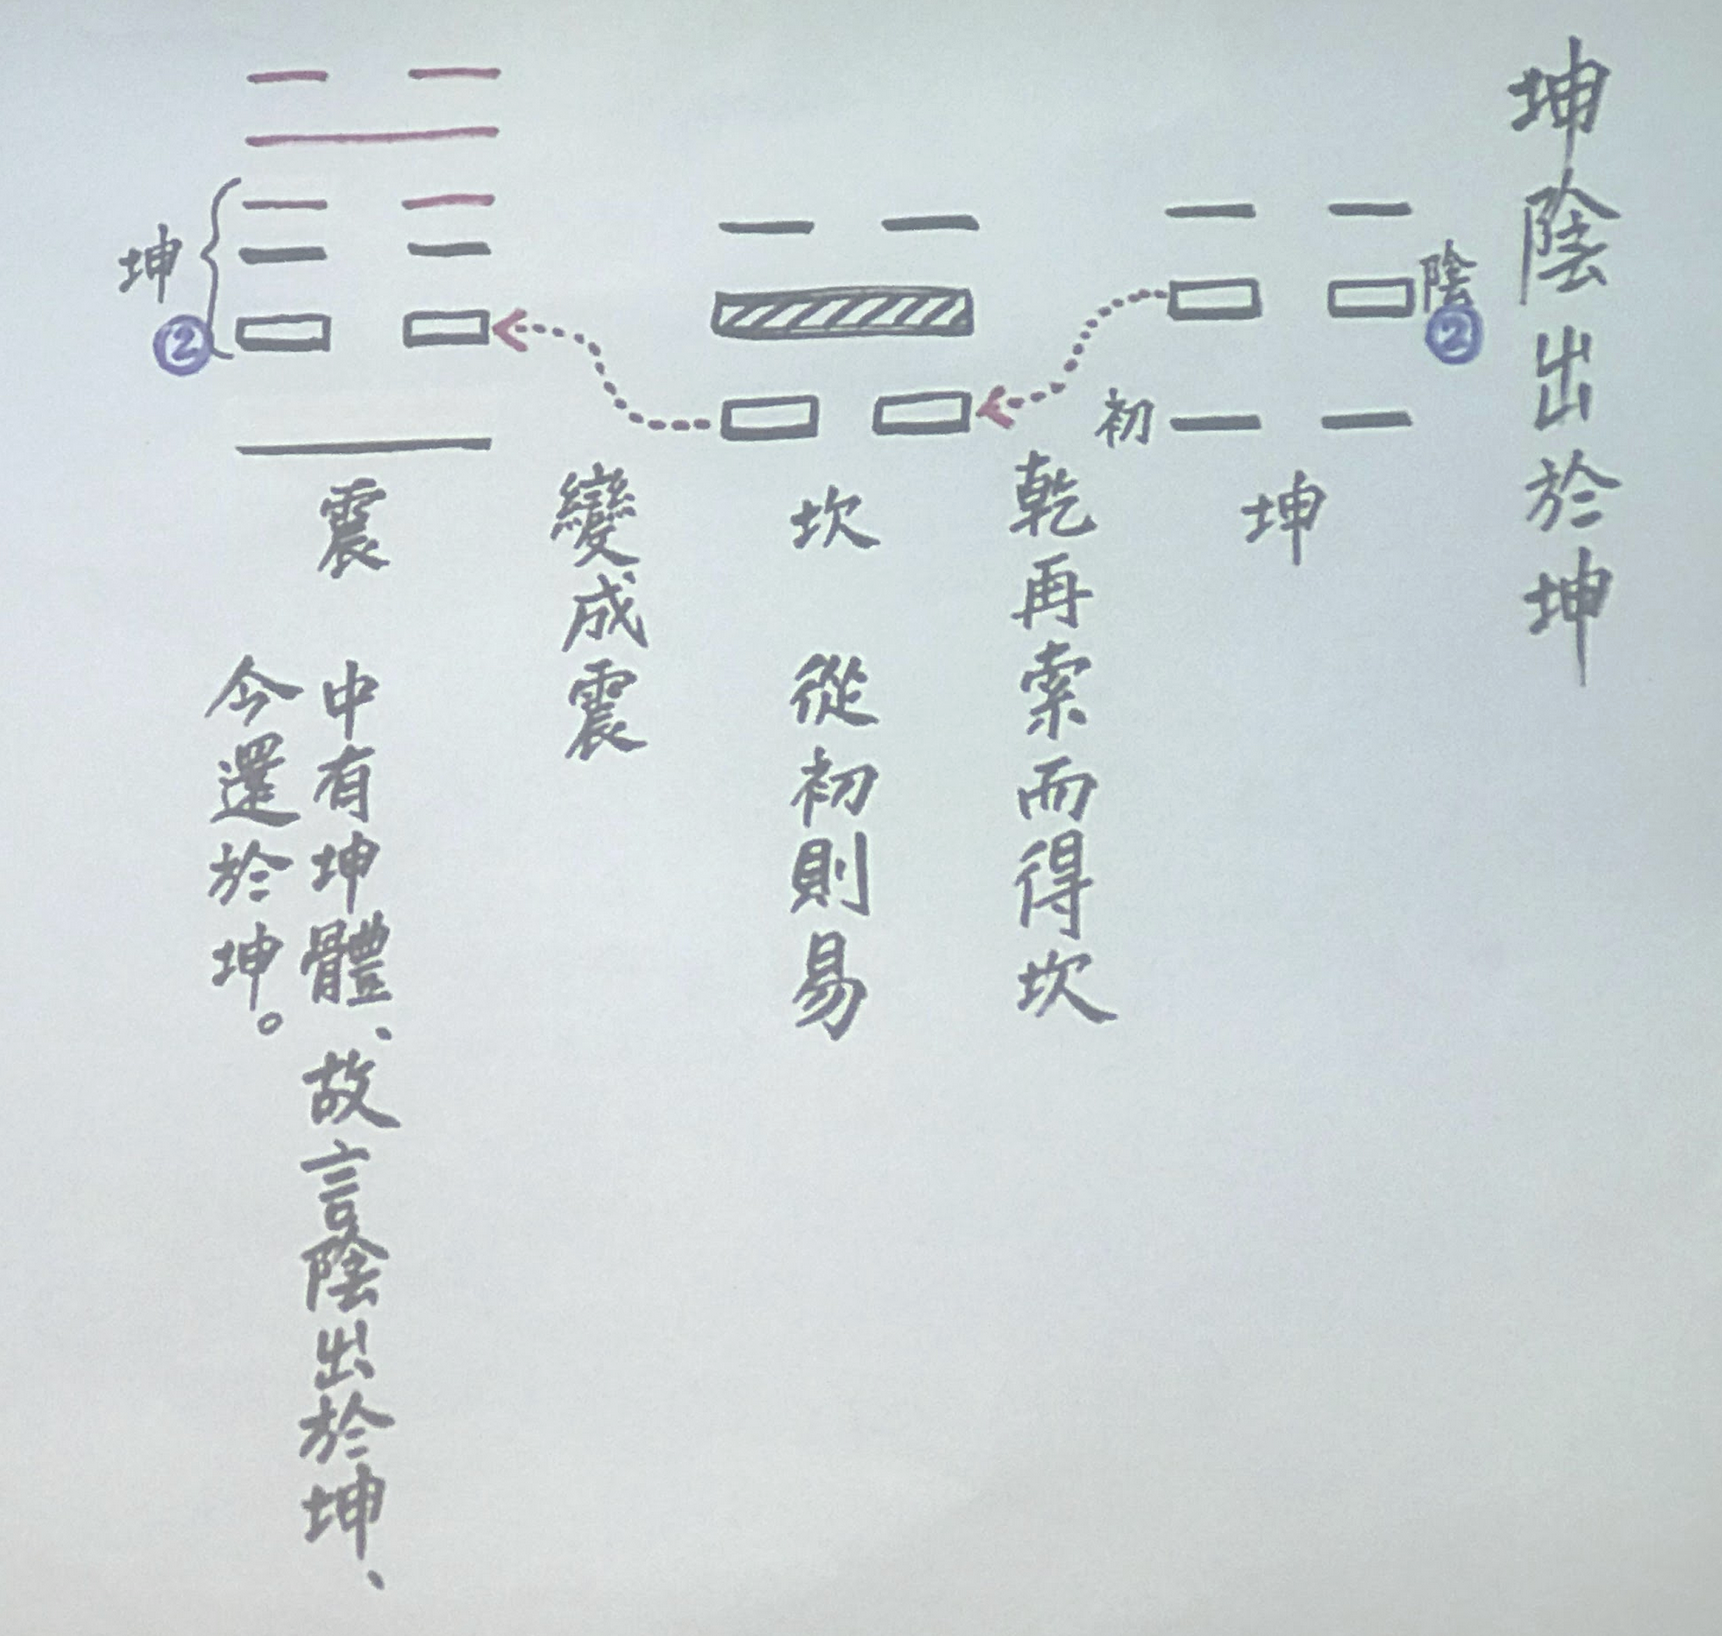 坤陰出於坤
陰
②
初
坤
乾再索而得坎
坎
從初則易
變成震
坤
②
震
中有坤體、故言陰出於坤、
今還於坤。